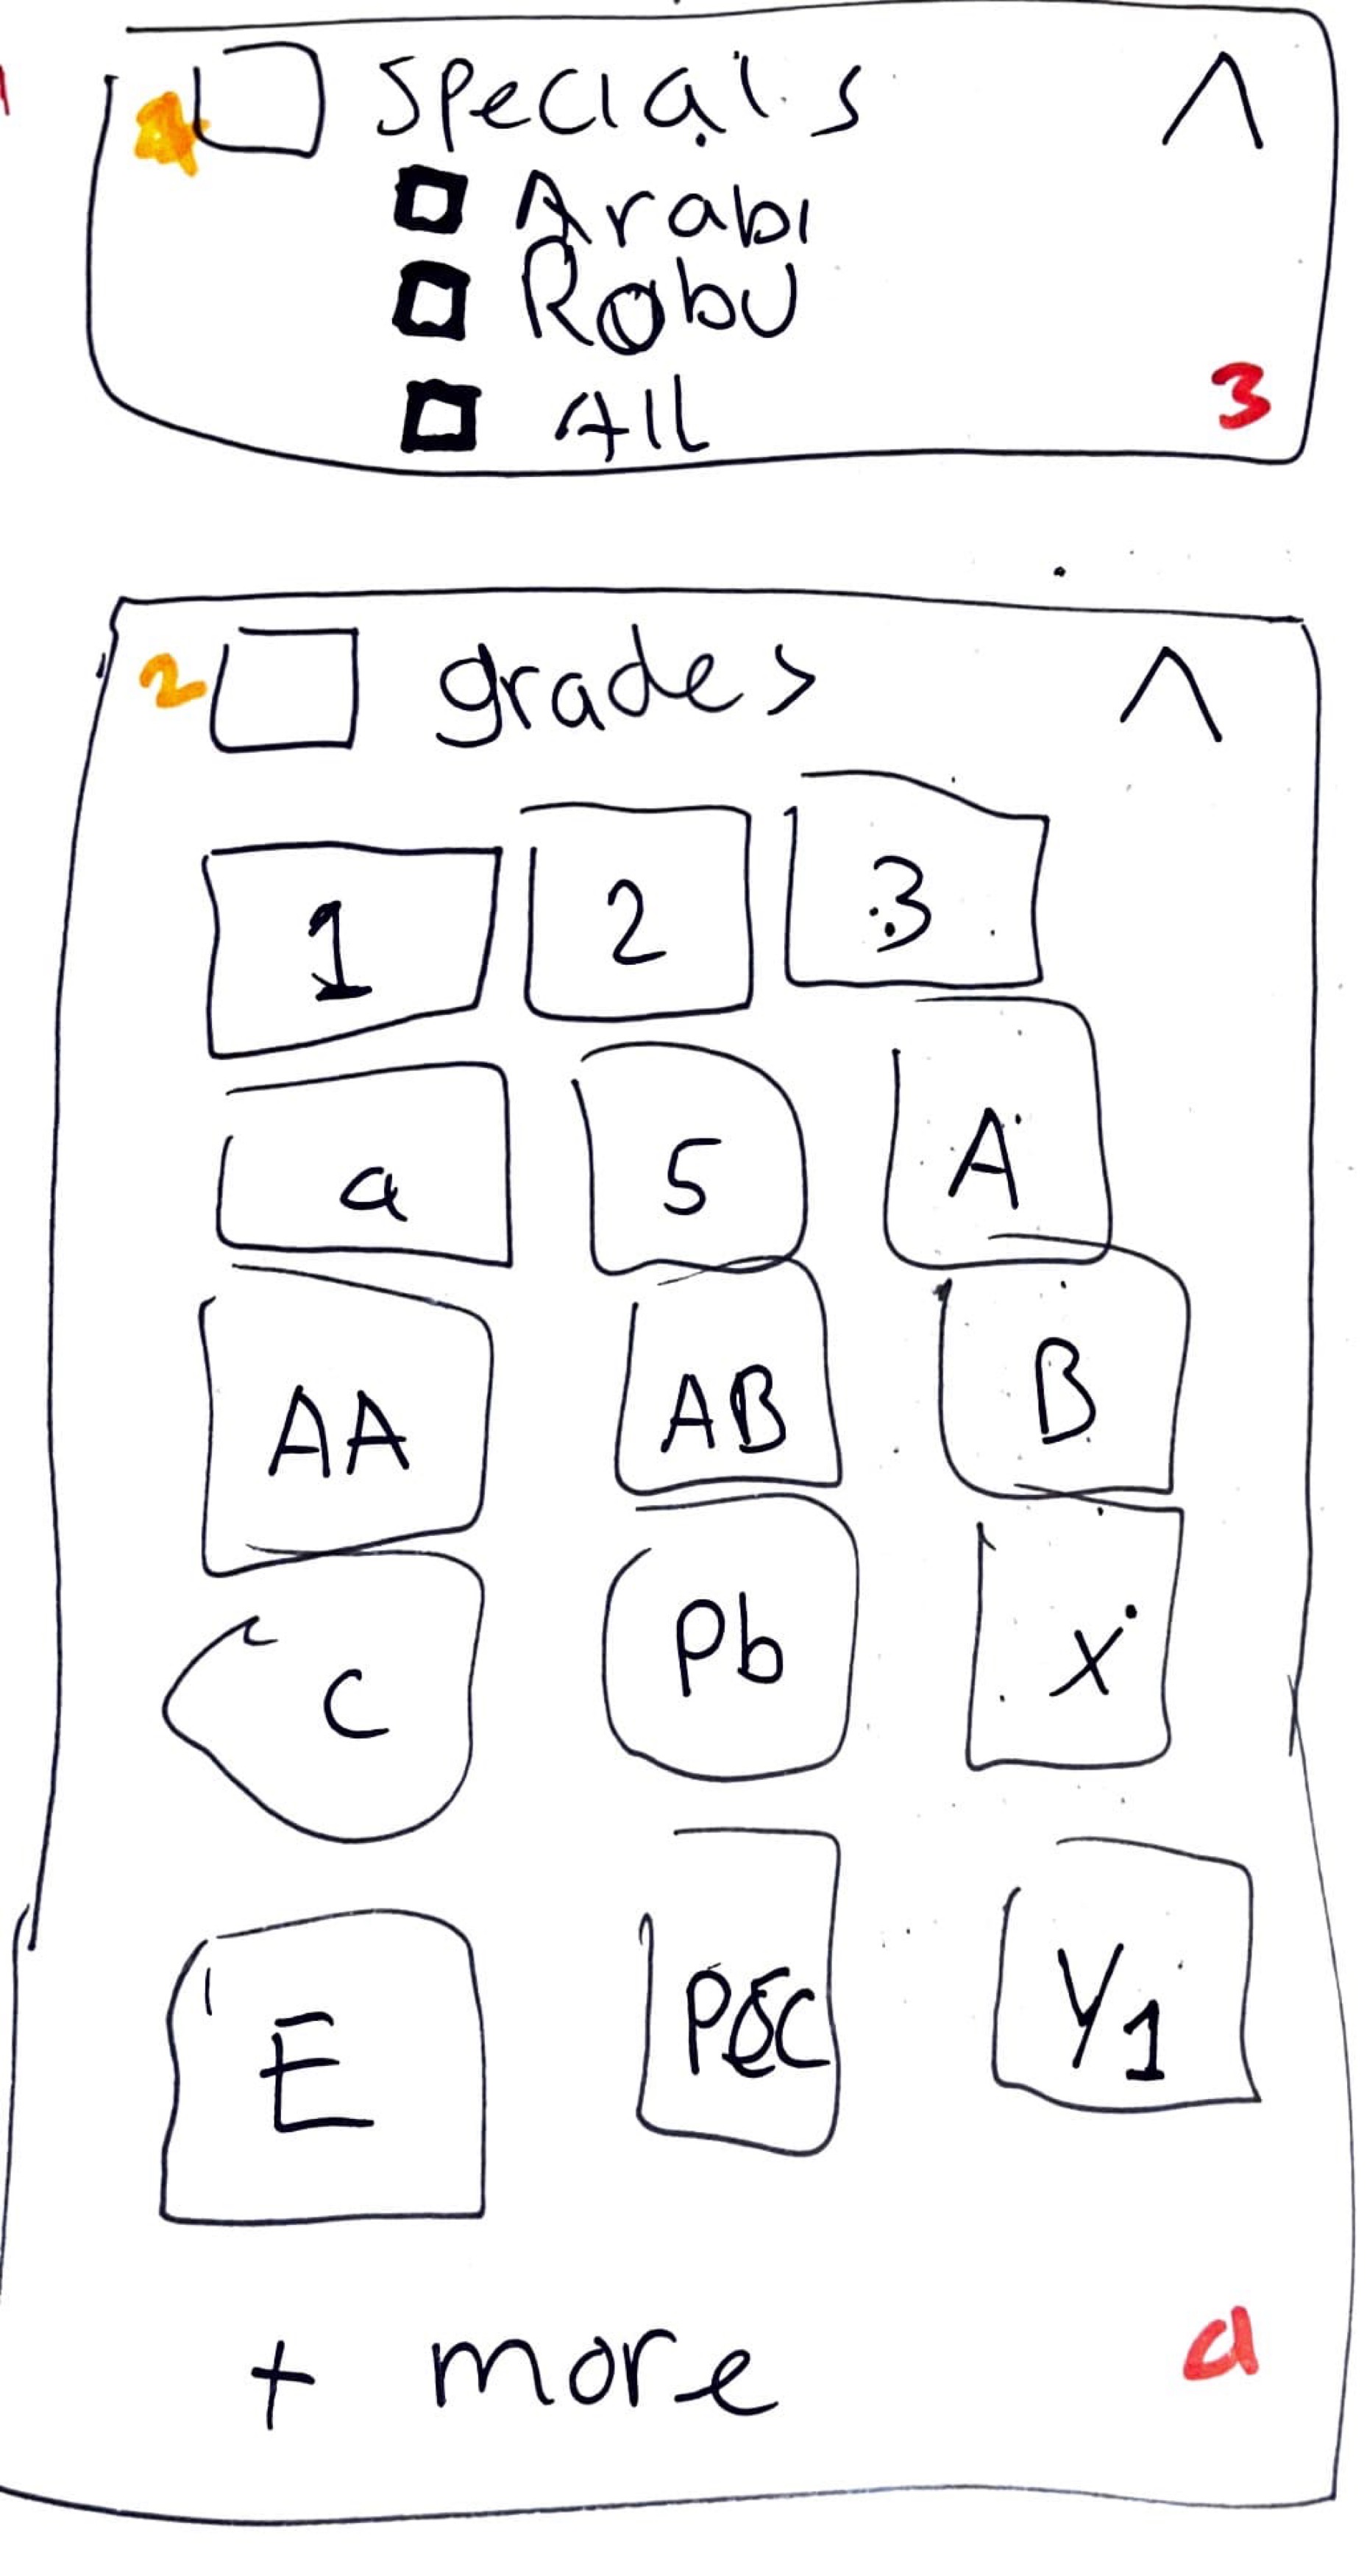 1 Specials ^
Arabi
Robu
All
3
2 grades ^
1 2 3
a 5 A
AA AB B
C Pb X
E PEC Y1
+ more a